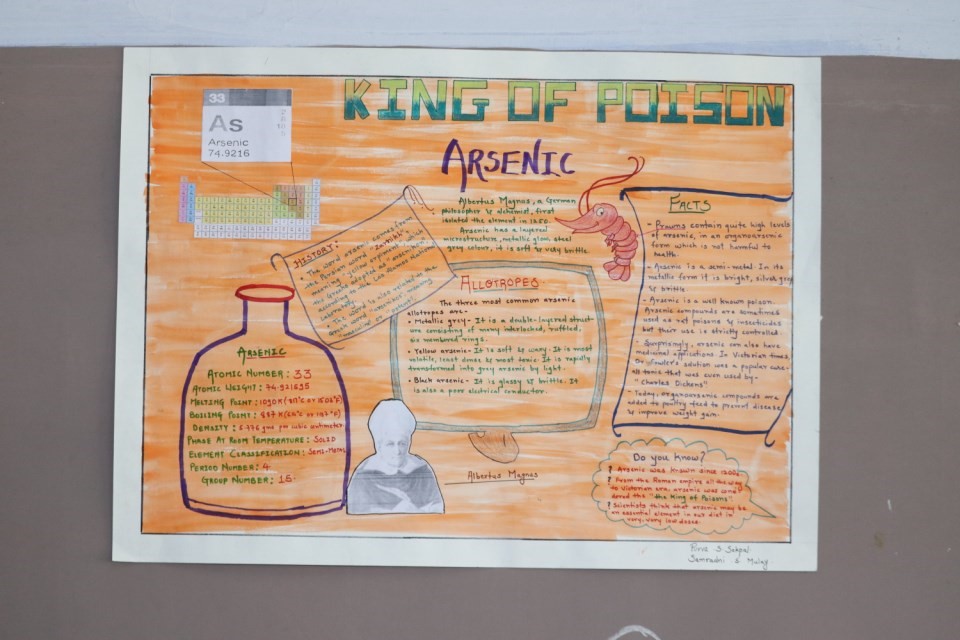 KING OF POISON
ARSENIC
33
As
Arsenic
74.9216
Albertus Magnus, a German
philosopher & alchemist, first
isolated the element in 1250.
Arsenic has a layered
microstructure, metallic gloom steel
grey colour, it is soft & very brittle.
HISTORY:
The word arsenic comes from
Persian word
the Greeks adopted as arsenikon
according to the Los Alamos National
Laboratory.
The word is also related to the
Greek word "arsenikos", meaning
"masculine" or "potent".
ALLOTROPES
The three most common arsenic
allotropes are-
• Metallic grey- It is a double-layered struct-
ure consisting of many interlocked, ruffled,
six membered rings.
• Yellow arsenic- It is soft & waxy. It is most
volatile, least dense & most toxic. It is rapidly
transformed into grey arsenic by light.
• Black arsenic- It is glassy & brittle. It
is also a poor electrical conductor.
FACTS
- Prawns contain quite high levels
of arsenic, in an organoarsenic
form which is not harmful to
health.
- Arsenic is a semi-metal. In its
metallic form it is bright, silver grey
& brittle.
- Arsenic is a well known poison.
Arsenic compounds are sometimes
used as rat poisons & insecticides
but their use is strictly controlled.
- Surprisingly, arsenic can also have
medicinal applications. In Victorian times,
Dr. Fowler's solution was a popular cure-
all tonic that was even used by-
"Charles Dickens"
- Today, organoarsenic compounds are
added to poultry feed to prevent disease
& improve weight gain.
ARSENIC
ATOMIC NUMBER: 33
ATOMIC WEIGHT: 74.921595
MELTING POINT: 1090 K
BOILING POINT: 887 K
DENSITY: 5.776 gms per cubic centimeter
PHASE AT ROOM TEMPERATURE: SOLID
ELEMENT CLASSIFICATION: SEMI-METAL
PERIOD NUMBER: 4
GROUP NUMBER: 15
Albertus Magnus
Do you know?
? Arsenic was known since
? From the Roman empire all the way
to Victorian era, arsenic was consi
dered the "the King of Poisons"
? Scientists think that arsenic may be
an essential element in our diet in
very, very low doses.